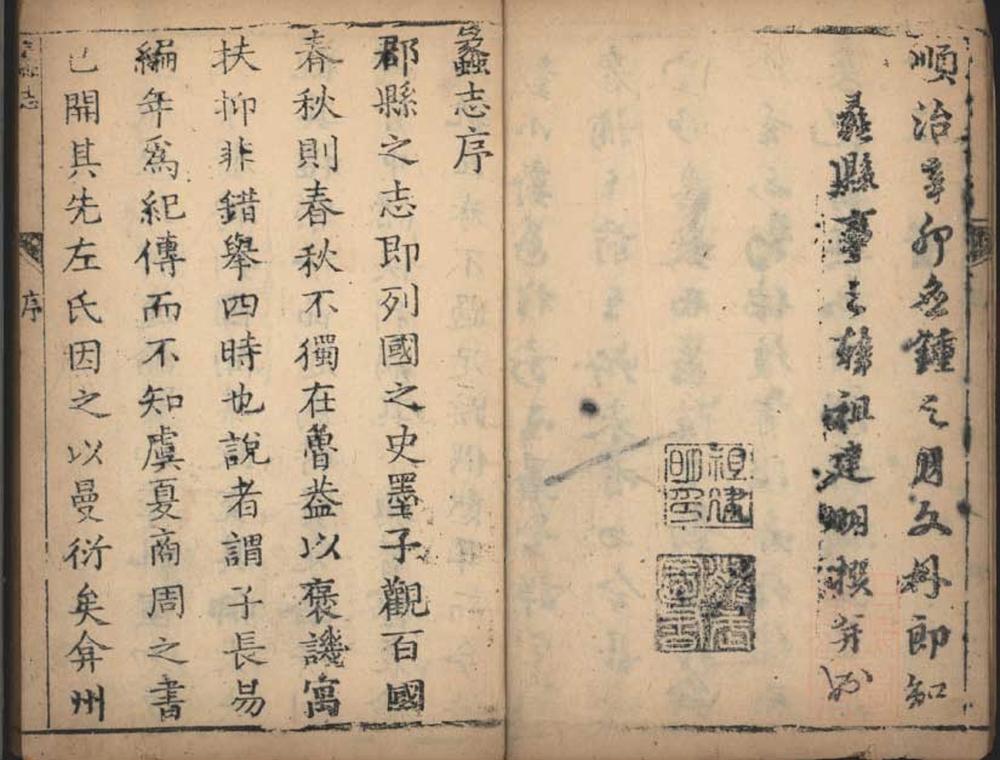 順治辛卯鍾之月文林郎知
蠡縣事三韓祖建明撰并
祖建明印
蠡志序
郡縣之志即列國之史墨子觀百國
春秋則春秋不獨在魯葢以褒譏寓
扶抑非錯舉四時也說者謂子長易
編年爲紀傳而不知虞夏商周之書
已開其先左氏因之以曼衍矣弇州
志
序